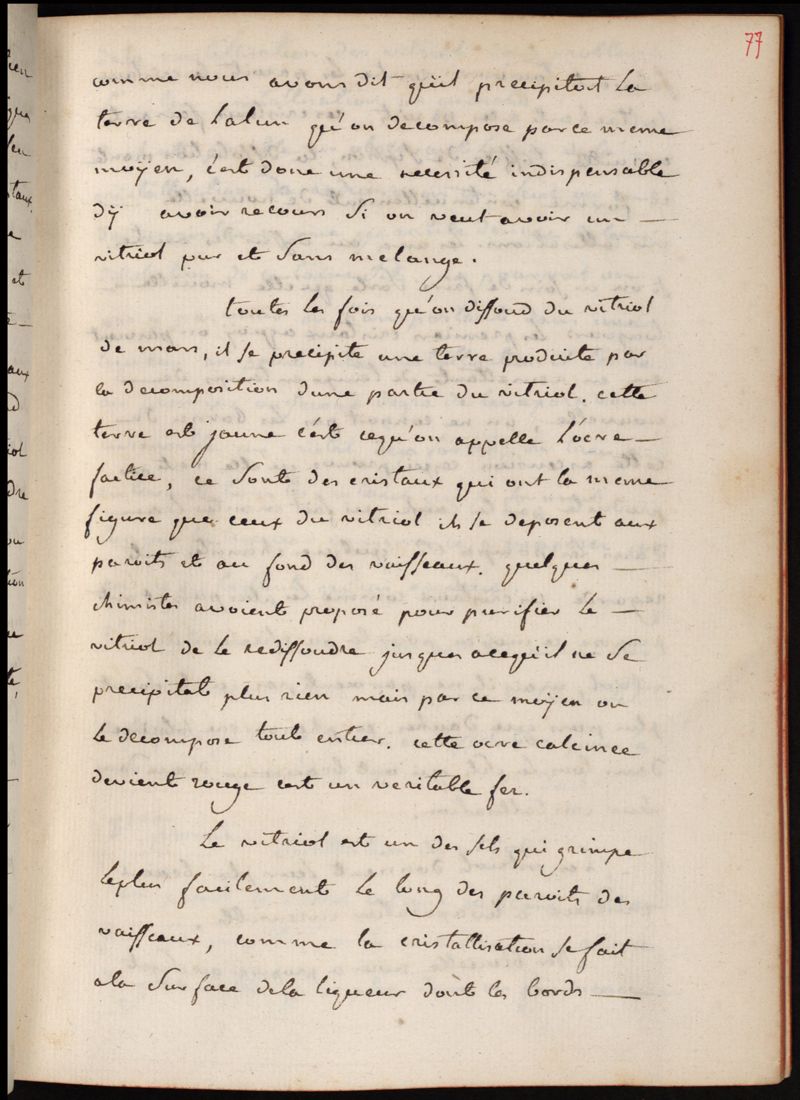 77
comme nous avons dit qu'il precipitoit la
terre de Lalun qu'on decompose par ce meme
moÿen, c'est donc une necessité indispensable
dÿ avoir recours si on veut avoir un —
vitriol pur et sans melange.
toutes les fois qu'on dissoud du vitriol
de mars, il se precipite une terre produite par
la decomposition dune partie du vitriol. cette
terre est jaune c'est cequ'on appelle L'ocre —
factice, ce sont des cristaux qui ont la meme
figure que ceux du vitriol ils se deposent aux
paroits et au fond des vaisseaux. quelques —
chimistes avoient proposé pour purifier le —
vitriol de le redissoudre jusques acequ'il ne se
precipitat plus rien mais par ce moÿen on
le decompose tout entier. cette ocre calcinee
devient rouge c'est un veritable fer.
Le vitriol est un des sels qui grimpe
leplus facilement le long des paroits des
vaisseaux, comme la cristallisation se fait
ala surface dela liqueur dont les bords —